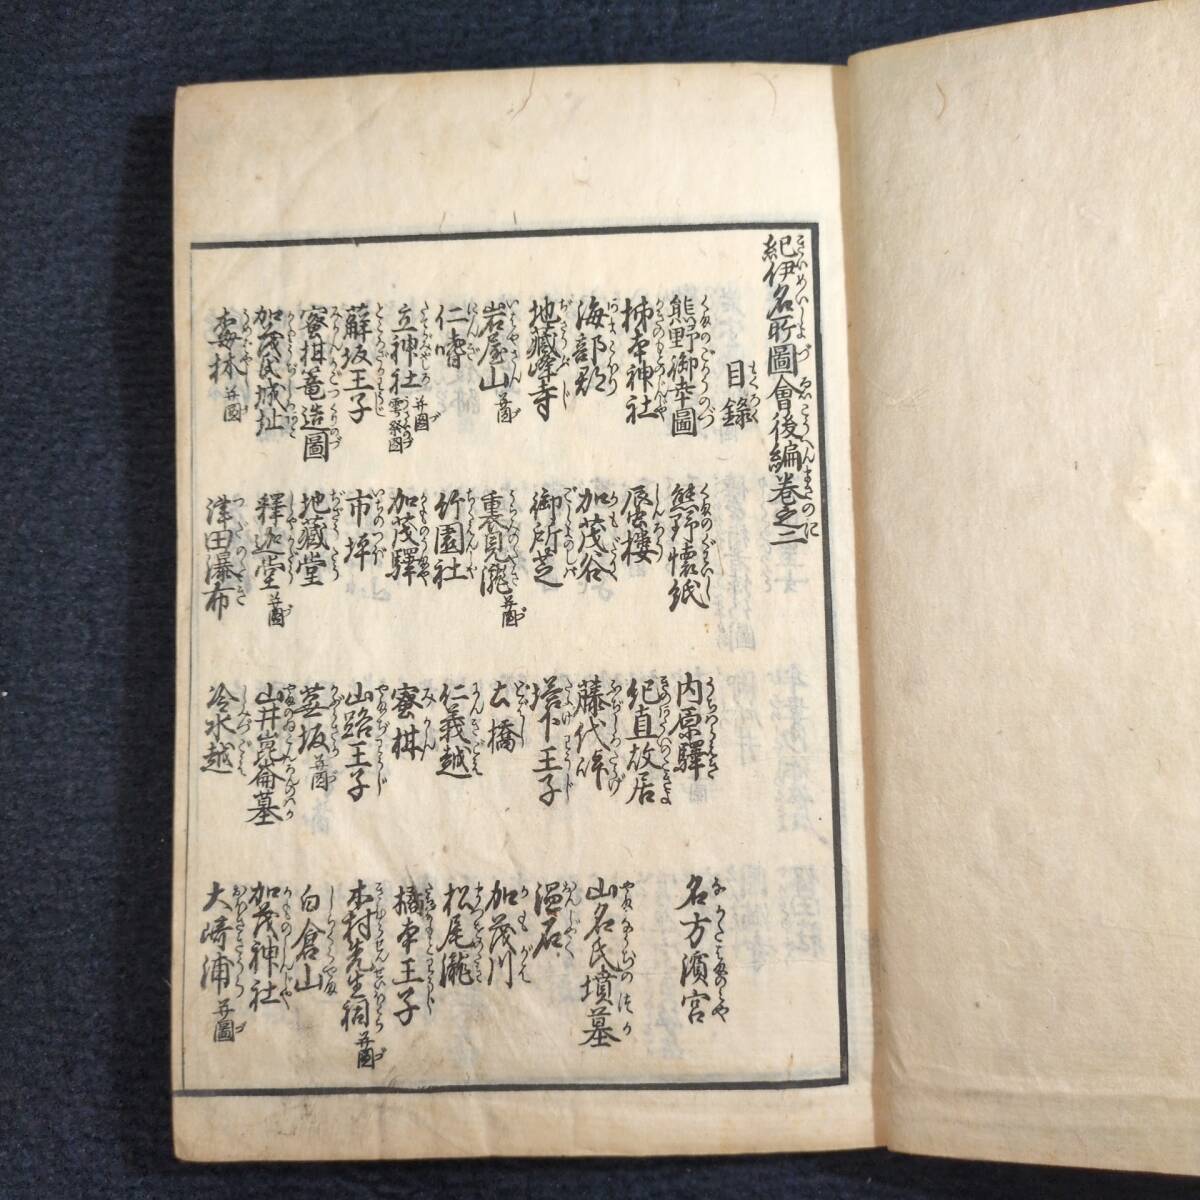 紀伊名所圖會後編巻之二
目錄
熊野御幸圖 熊野懐紙 内原驛 名方濱宮
柿本神社 唇樓 紀直故居
海部郡 加茂谷 藤代峠 山名氏墳墓
地藏峰寺 御所芝 塔下王子 温石
岩屋山并圖 裏見瀧并圖 土橋 加茂川
仁嗜 竹園社 仁義越 松尾瀧
立神社并圖雲祭圖 加茂驛 蜜柑 橘本王子
蘇坂王子 市坪 山路王子 木村先生祠并圖
蜜柑篭造圖 地藏堂 蕪坂并圖 白倉山
加茂氏城址 釋迦堂并圖 山井崑崙墓 加茂神社
梅林并圖 津田瀑布 冷水越 大崎浦并圖